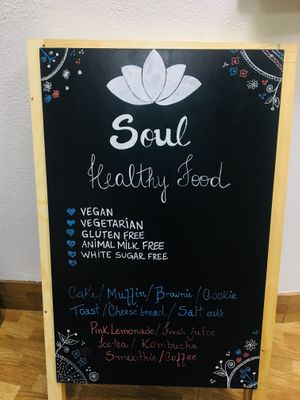 Soul
Healthy Food
VEGAN
VEGETARIAN
GLUTEN FREE
ANIMAL MILK FREE
WHITE SUGAR FREE
Cake/Muffin/Brownie/Cookie
Toast/Cheese bread/Salt cake
Pink Lemonade/Fresh juice
Icetea/Kombucha
Smoothie/Coffee